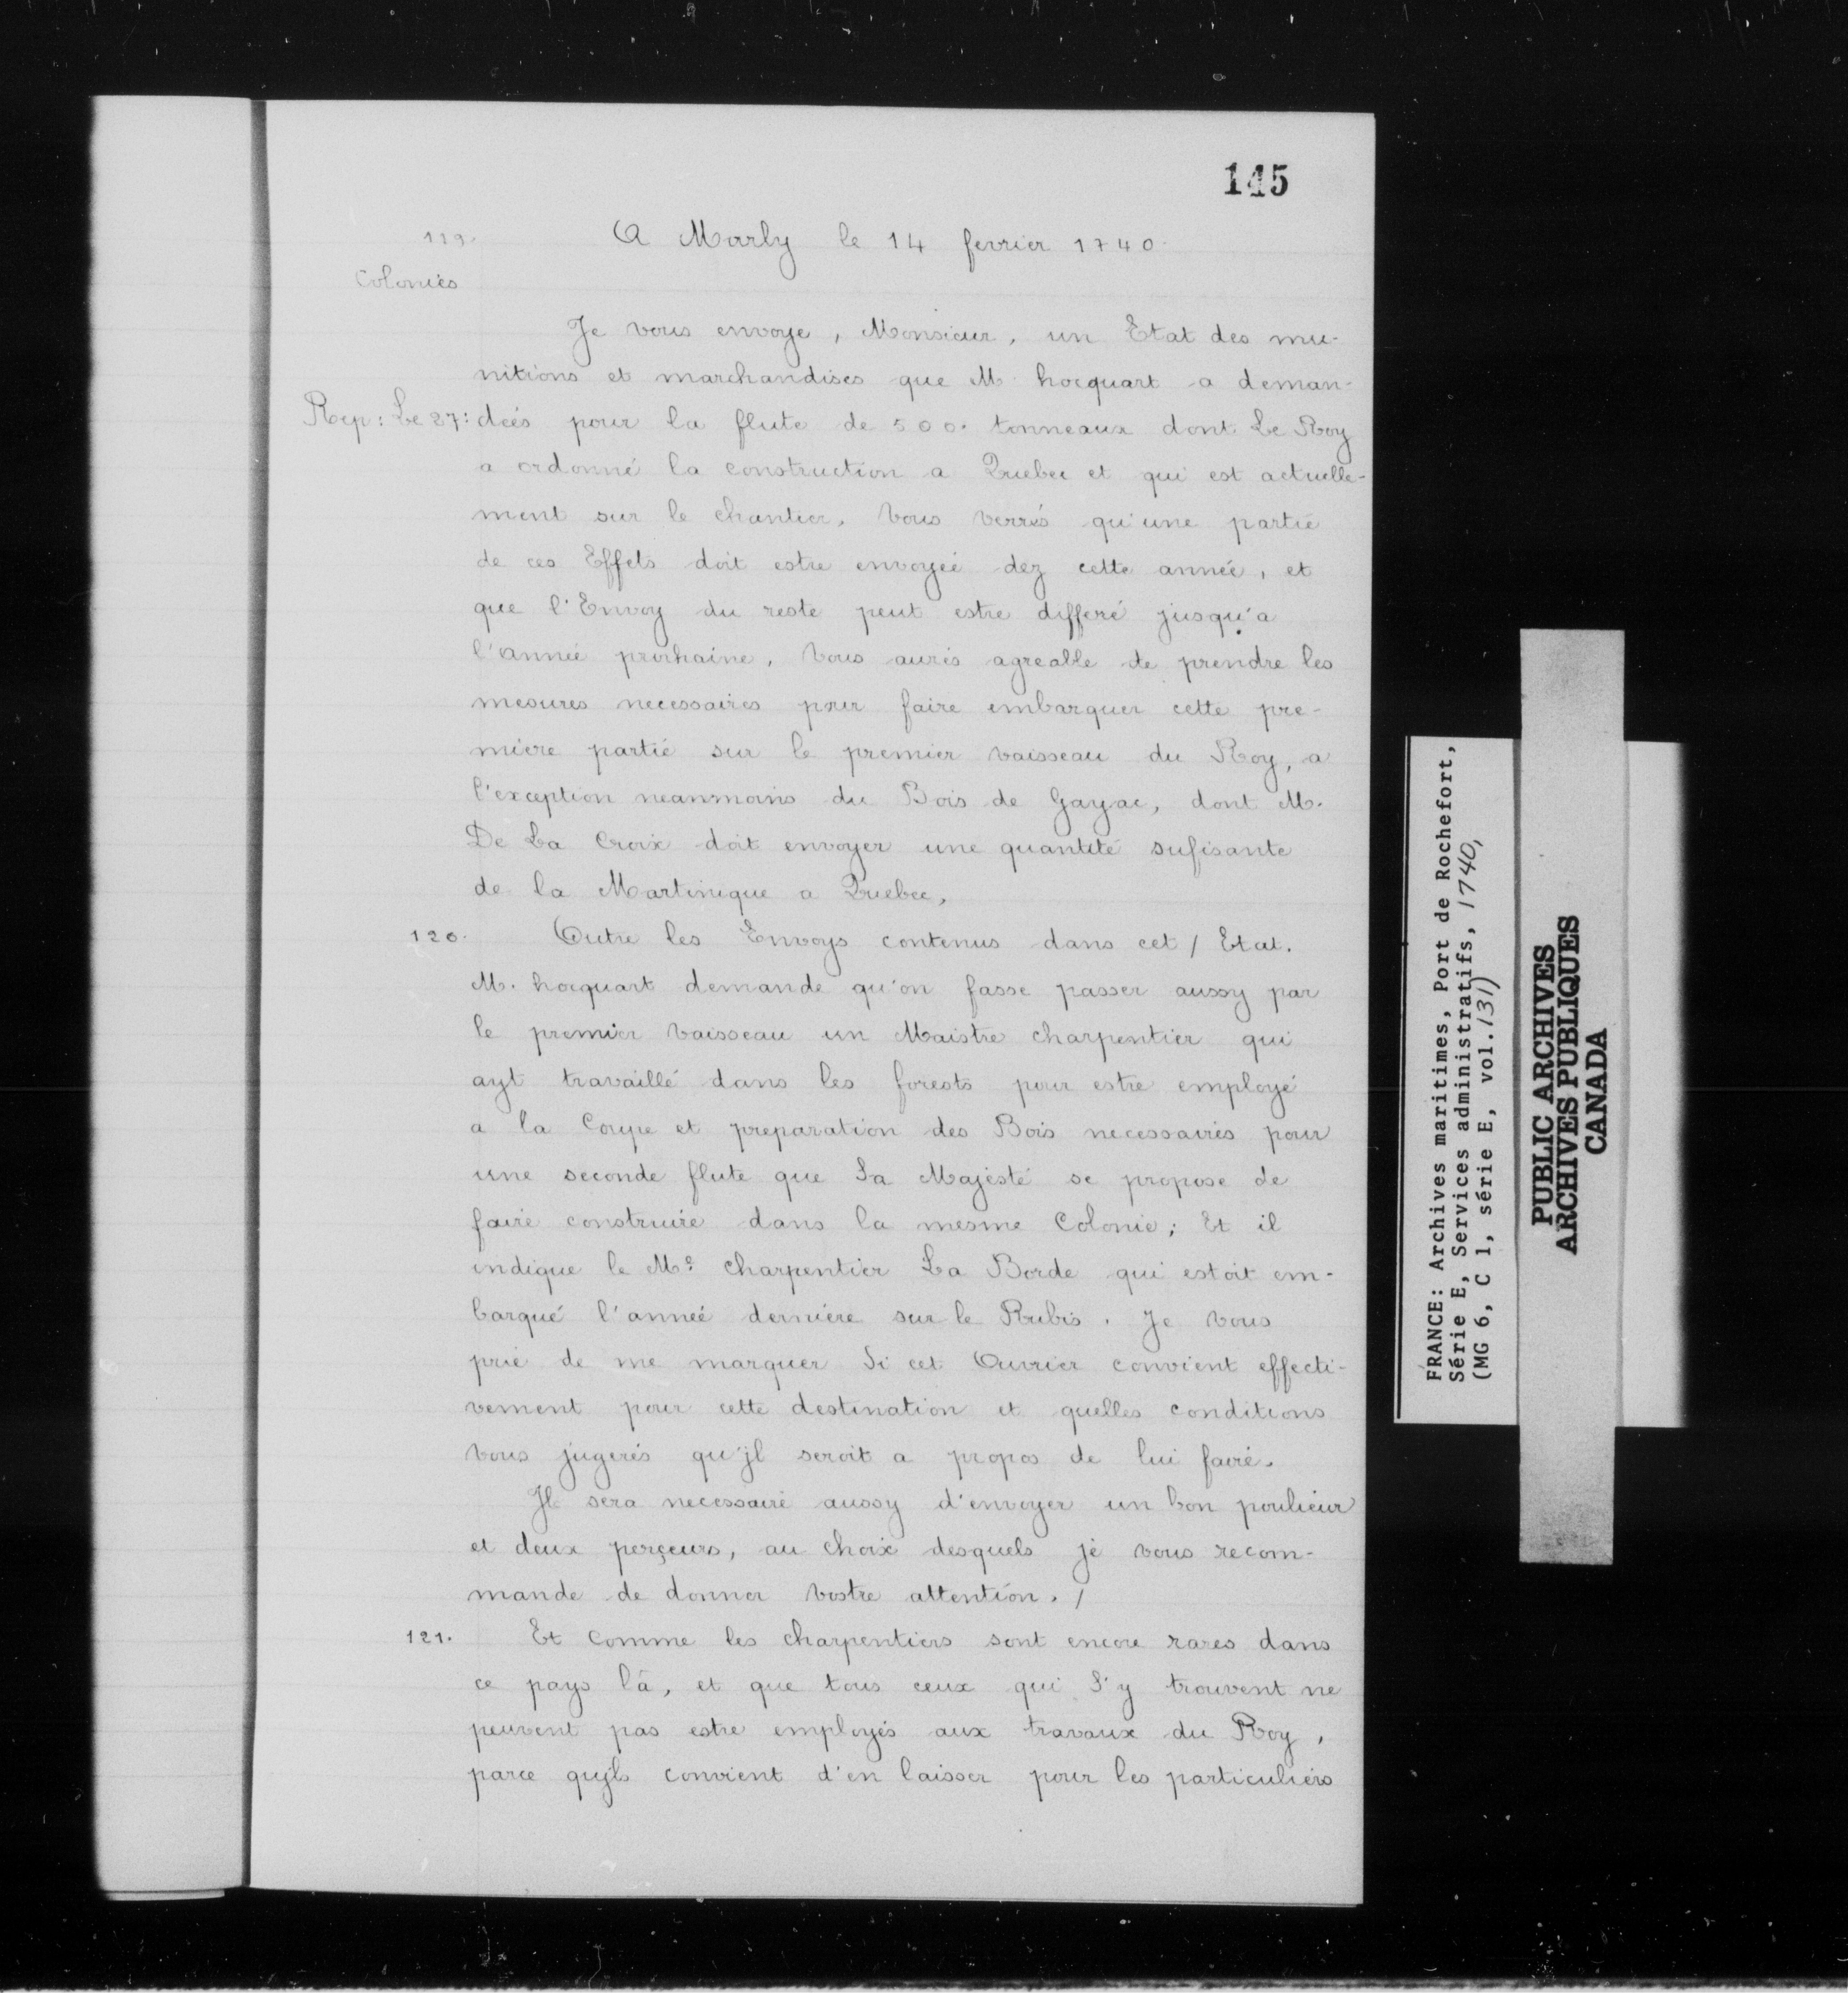 145
119. A Marly le 14 fevrier 1740.
Colonies
Je vous envoye, Monsieur, un Etat des mu-
nitions et marchandises que M. hocquart a deman-
Rep: Le 27: deés pour la flute de 500. tonneaux dont Le Roy
a ordonné la construction a Quebec et qui est actuelle-
ment sur le chantier, Vous verrés qu'une partie
de ces Effets doit estre envoyeé dez cette anneé, et
que l'Envoy du reste peut estre differé jusqu'a
l'anneé prochaine. Vous aurés agreable de prendre les
mesures necessaires pour faire embarquer cette pre-
miere partie sur le premier vaisseau du Roy, a
l'exception neanmoins du Bois de Gayac, dont M.
De La Croix doit envoyer une quantité sufisante
de la Martinique a Quebec,
120. Outre les Envoys contenus dans cet / Etat.
M. hocquart demande qu'on fasse passer aussy par
le premier vaisseau un Maistre charpentier qui
ayt travaillé dans les forests pour estre employé
a la Coupe et preparation des Bois necessaires pour
une seconde flute que Sa Majesté se propose de
faire construire dans la mesme Colonie; Et il
indique le Me. charpentier La Borde qui estoit em-
barqué l'anneé derniere sur le Rubis. Je vous
prie de me marquer Si cet Ouvrier convient effecti-
vement pour cette destination et quelles conditions
vous jugerés qu'jl seroit a propos de lui faire.
Jl sera necessaire aussy d'envoyer un bon poulieur
et deux perçeurs, au choix desquels je vous recom-
mande de donner vostre attention. /
121. Et comme les charpentiers sont encore rares dans
ce pays là, et que tous ceux qui S'y trouvent ne
peuvent pas estre employés aux travaux du Roy,
parce qu'jls convient d'en laisser pour les particuliers
FRANCE: Archives maritimes, Port de Rochefort,
Série E, Services administratifs, 1740,
(MG 6, C 1, série E, vol. 131)
PUBLIC ARCHIVES
ARCHIVES PUBLIQUES
CANADA